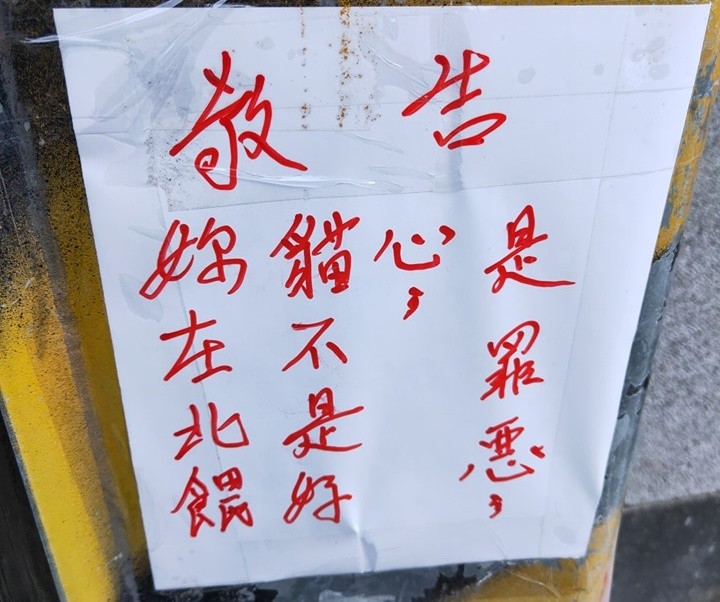 敬告
妳在北餵
貓不是好
心，
是罪惡，